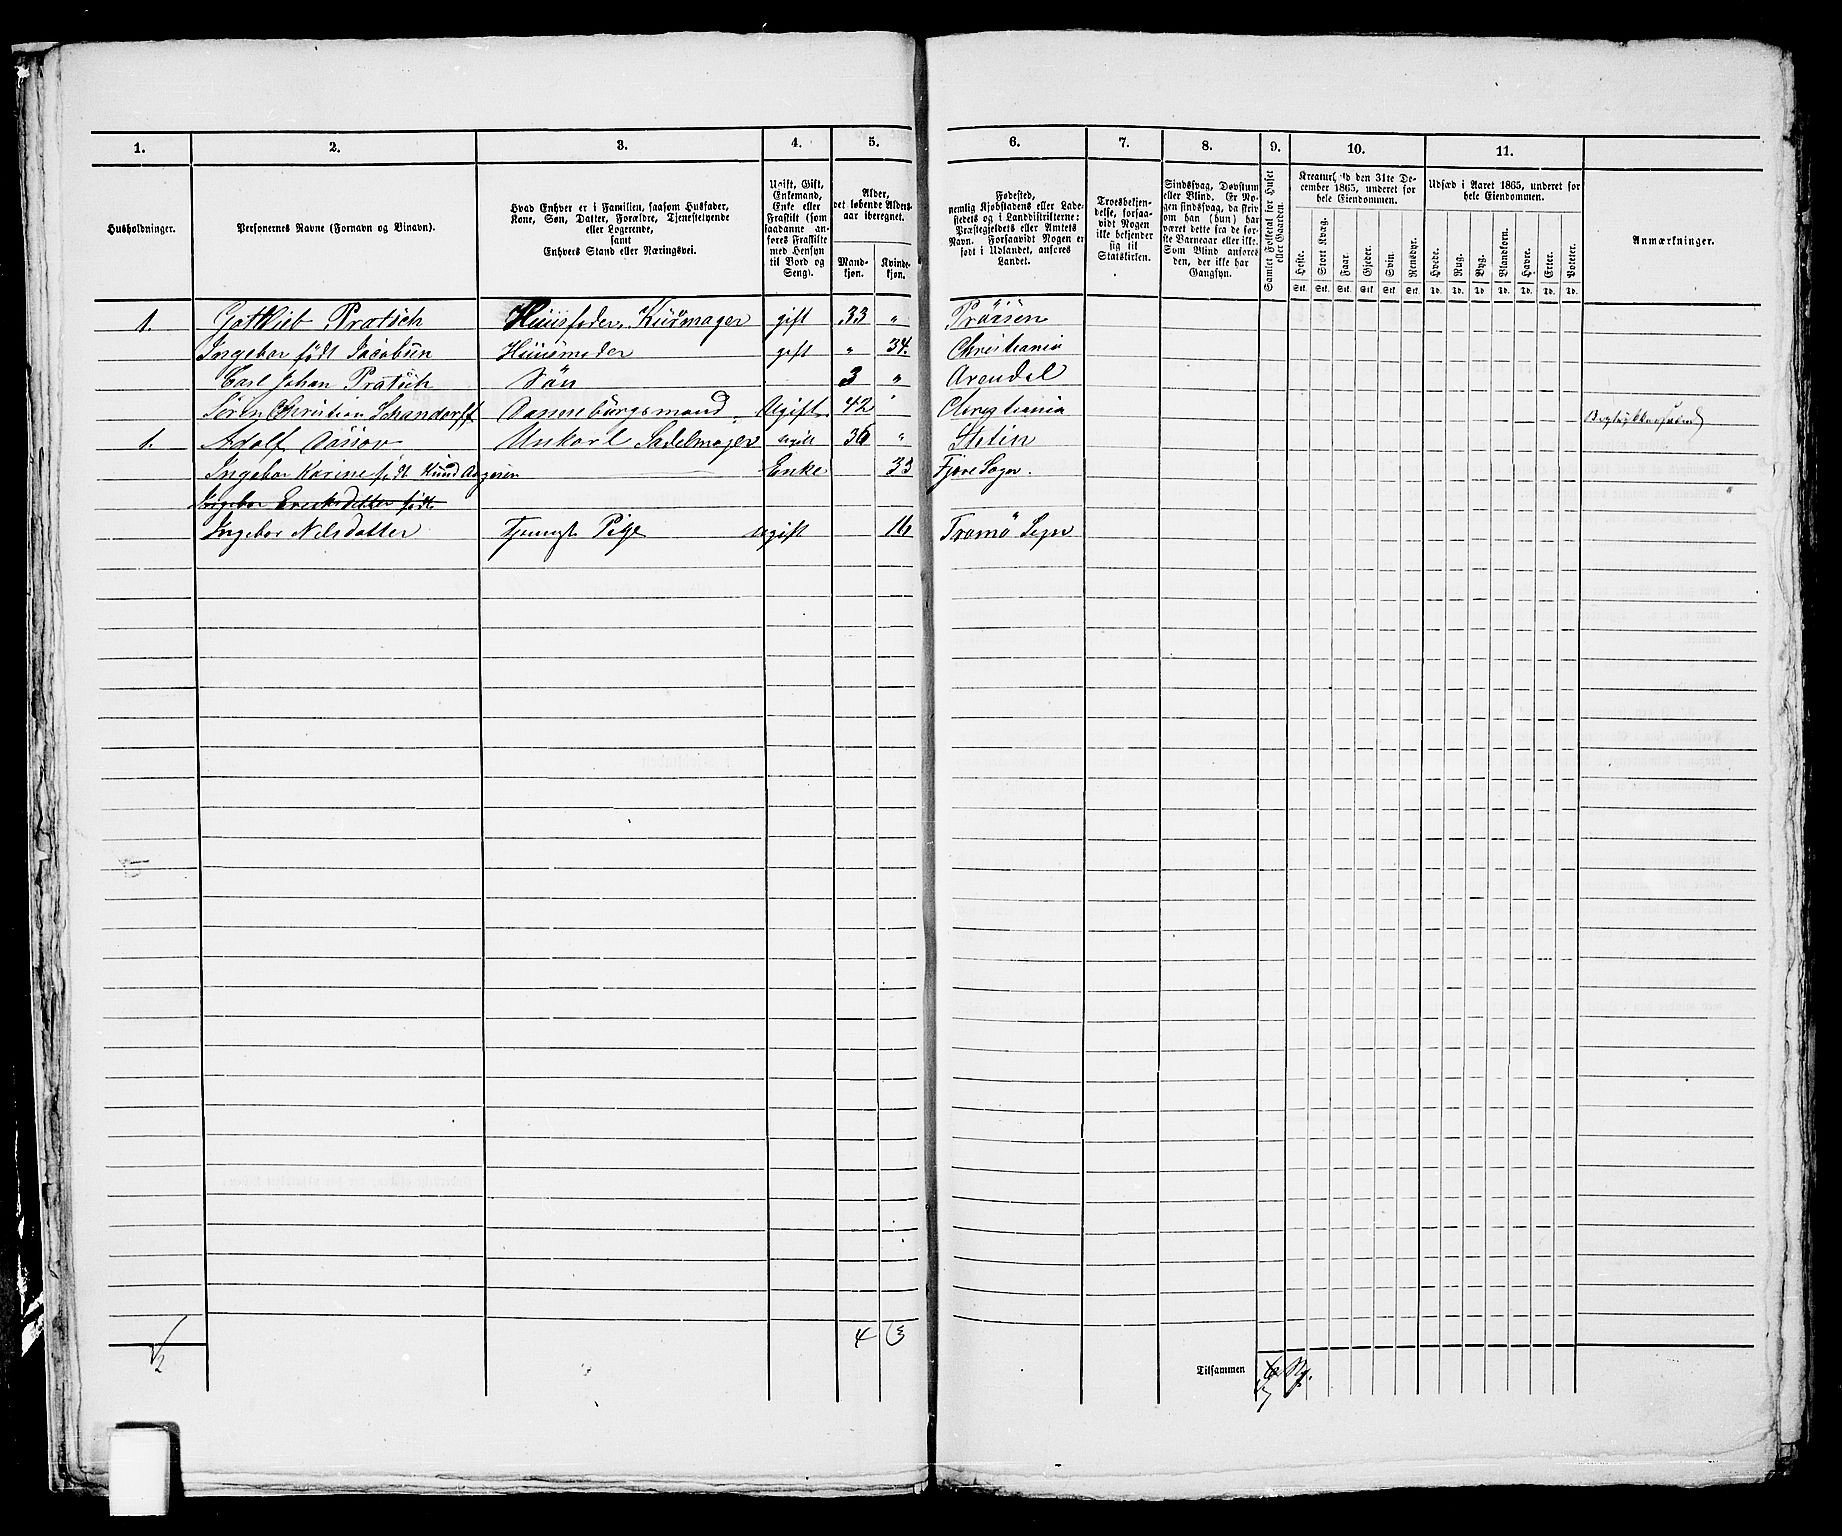 1. 2. 3. 4. 5. 6. 7. 8. 9. 10. 11.
Husholdninger.
Personernes Navne (Fornavn og Tilnavn).
Hvad Enhver er i Familien, saasom Husfader,
Kone, Søn, Datter, Forældre, Tjenestetyende
eller Logerende,
samt
Enhvers Stand eller Næringsvei.
Ugift, Gift,
Enkemand,
Enke eller
Fraskilt (som
saadanne an-
føres Fraskilte
med Hensyn
til Bord og
Seng).
Alder,
det løbende Alders-
aar iberegnet.
Mand-
kjøn.
Kvinde-
kjøn.
Fødested,
nemlig Kjøbstadens eller Lade-
stedets og i Landdistrikterne:
Præstegjeldets eller Amtets
Navn. Forsaavidt Nogen er
født i Udlandet, anføres
Landet.
Troesbekjen-
delse, forsaa-
vidt Nogen
ikke bekjender
sig til
Statskirken.
Sindssvag, Døvstum
eller Blind. Er No-
gen sindssvag, da skriv
om han (hun) har
været dette fra de før-
ste Barneaar eller ikke.
Som Blind anføres
den, der ikke har
Gangsyn.
Samlet Folketal for Huset
eller Gaarden.
Kreaturhold den 31te De-
cember 1865, underet for
hele Eiendommen.
Heste. Stort Kvæg. Faar. Gjeder. Svin. Rensdyr.
Stk. Stk. Stk. Stk. Stk. Stk.
Udsæd i Aaret 1865, underet for
hele Eiendommen.
Hvede. Rug. Byg. Blandkorn. Havre. Erter. Poteter.
Td. Td. Td. Td. Td. Td. Td.
Anmærkninger.
1. Gottlieb Pratsch Huusfader, Kürmager gift 33 " Pröisen
Ingebor født Jacobsen Huusmoder gift " 34. Christiania
Carl Johan Pratsch Sön 3 " Arendal
Sören Christian Schandorff Ugift 42 " Christiania
1. Adolf Sadelmager ugift 36 " Stetin
Ingebor Karine født Enke 33 Fjære Sogn.
Ingebor Ericksdatter født
Ingebor Nilsdatter Pige ugift 16 Tromö Sogn
2 4 3
Tilsammen 7